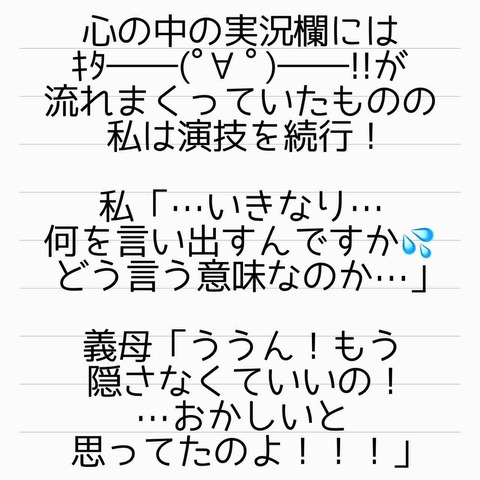 心の中の実況欄には
ｷﾀ――(ﾟ∀ﾟ)――!!が
流れまくっていたものの
私は演技を続行！
私「…いきなり…
何を言い出すんですか💦
どう言う意味なのか…」
義母「ううん！もう
隠さなくていいの！
…おかしいと
思ってたのよ！！！」